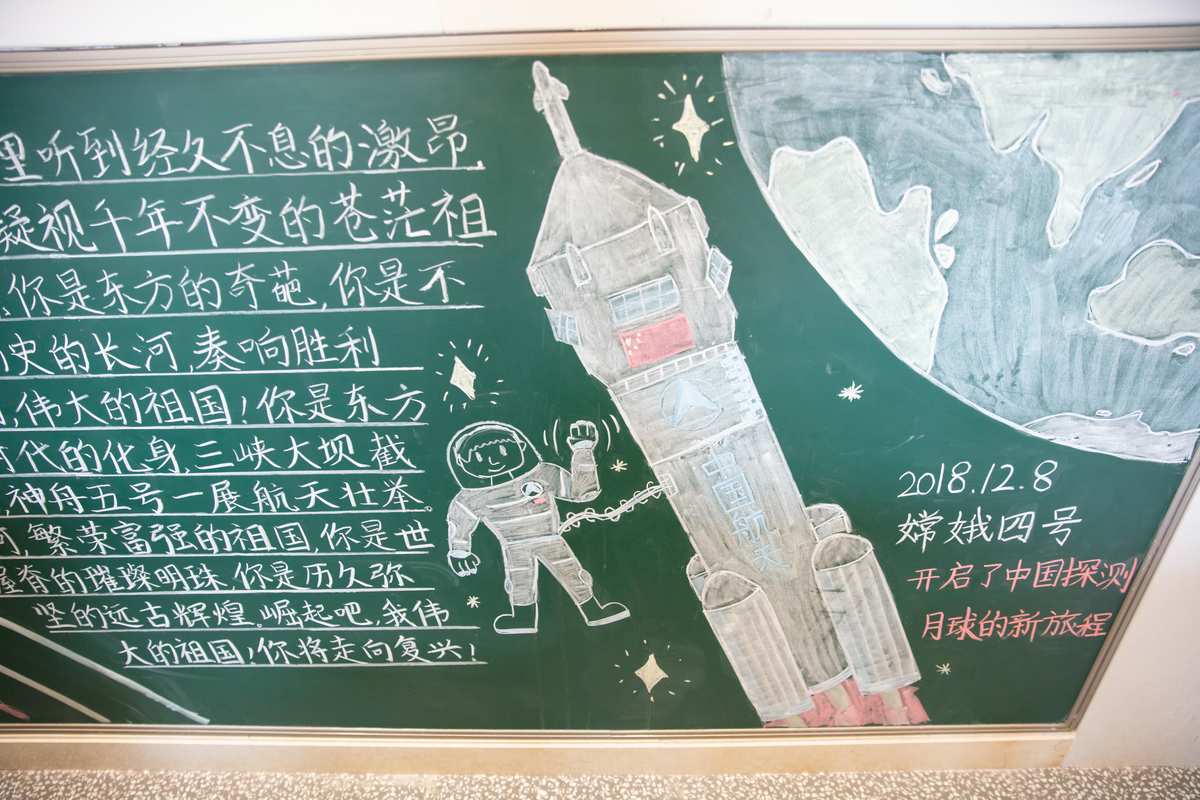 里听到经久不息的激昂
凝视千年不变的苍茫祖
你是东方的奇葩,你是不
史的长河,奏响胜利
,伟大的祖国!你是东方
时代的化身,三峡大坝截
,神舟五号一展航天壮举。
,繁荣富强的祖国,你是世
屋脊的璀璨明珠,你是历久弥
坚的远古辉煌,崛起吧,我伟
大的祖国,你将走向复兴!
中国航天
2018.12.8
嫦娥四号
开启了中国探测
月球的新旅程